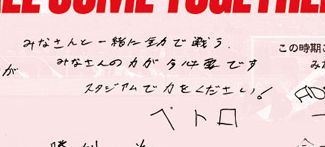 ALL COME TOGETHER
みなさんと一緒に全力で戦う.
みなさんの力が必要です
スタジアムで力をください!
ペトロ
この時期こ
み
が
AD